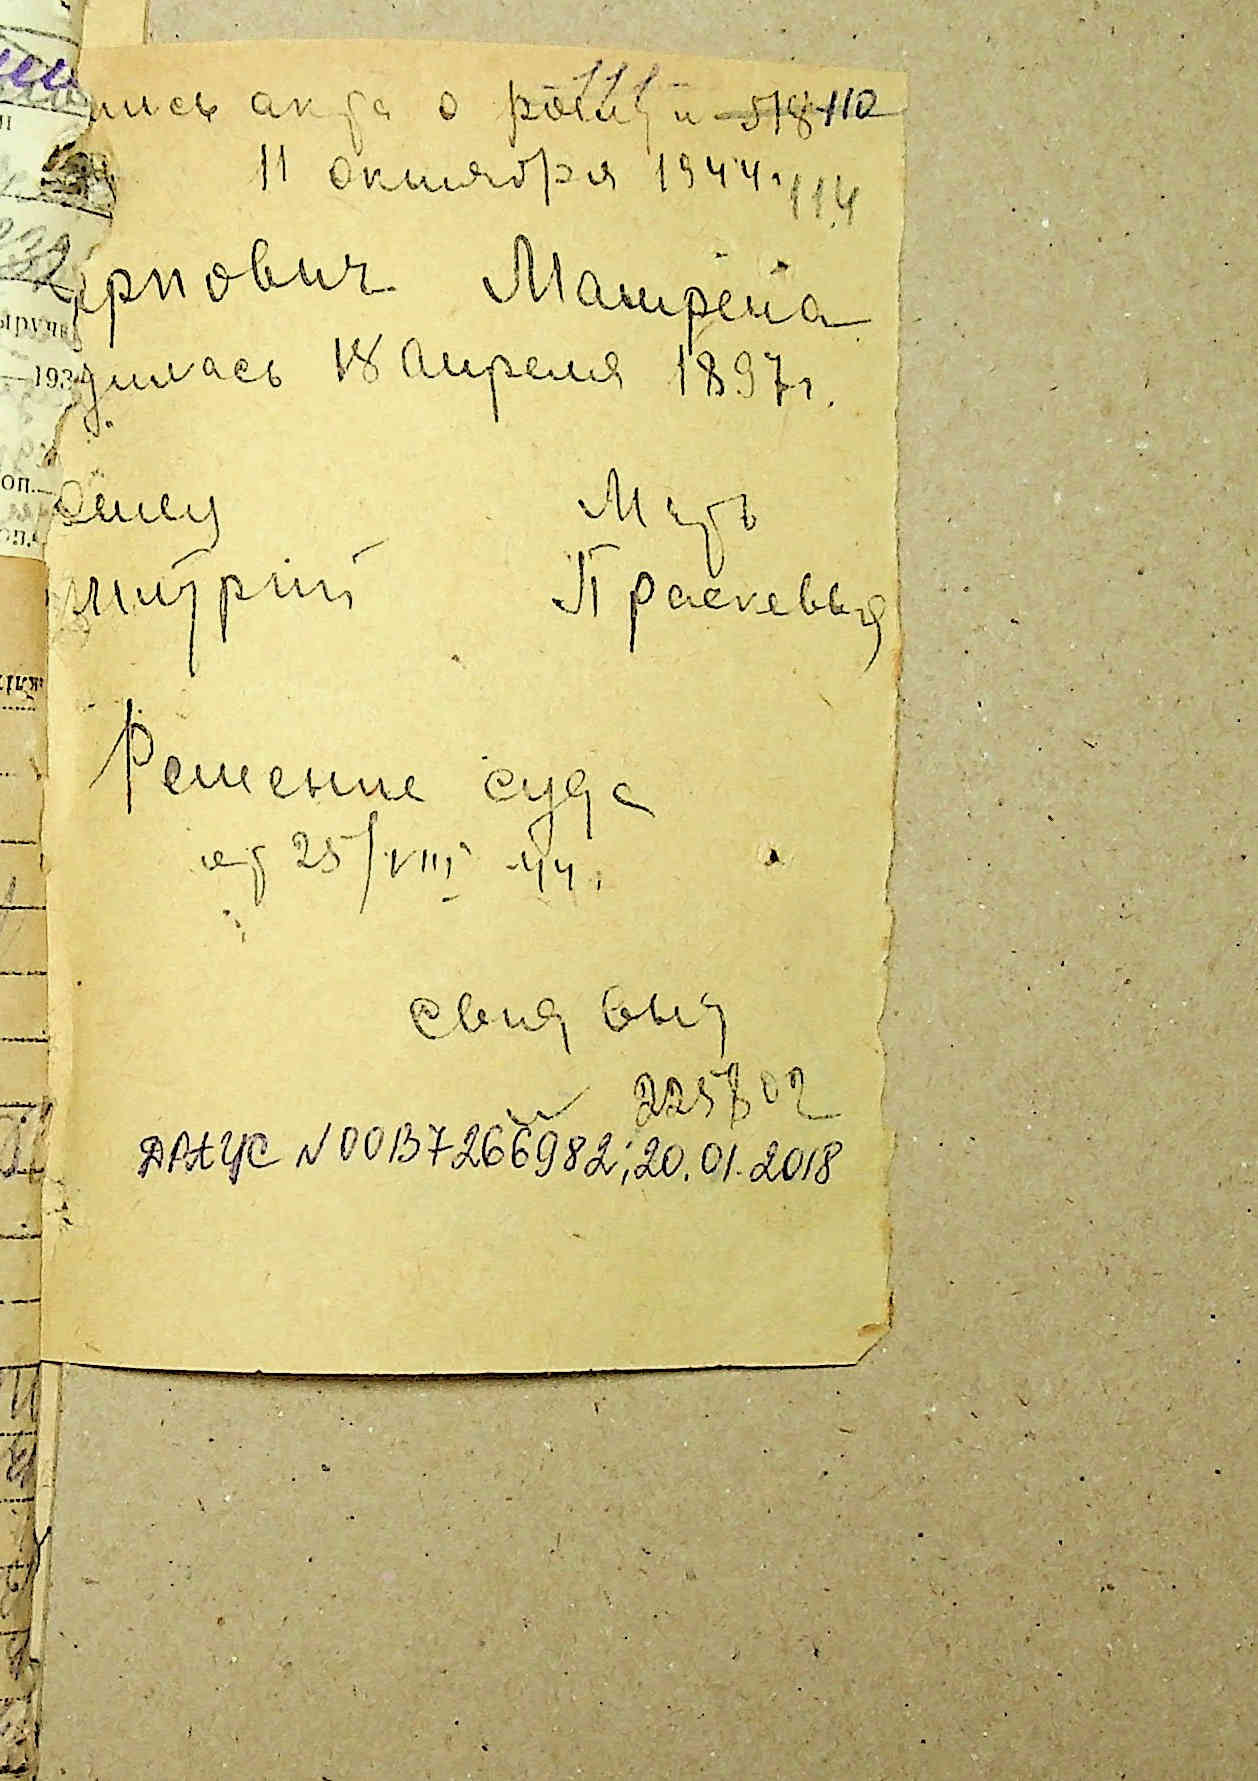 111
пись акта о рожд и 518 110
11 октября 1944. 114
арпович Матрена
дилась 18 апреля 1897г.
Отец Мать
митрий Прасковья
Решение суда
от 25/VIII 44.
225702
ДРАЦС N 00137266982; 20.01.2018
ыручк
193
оп.